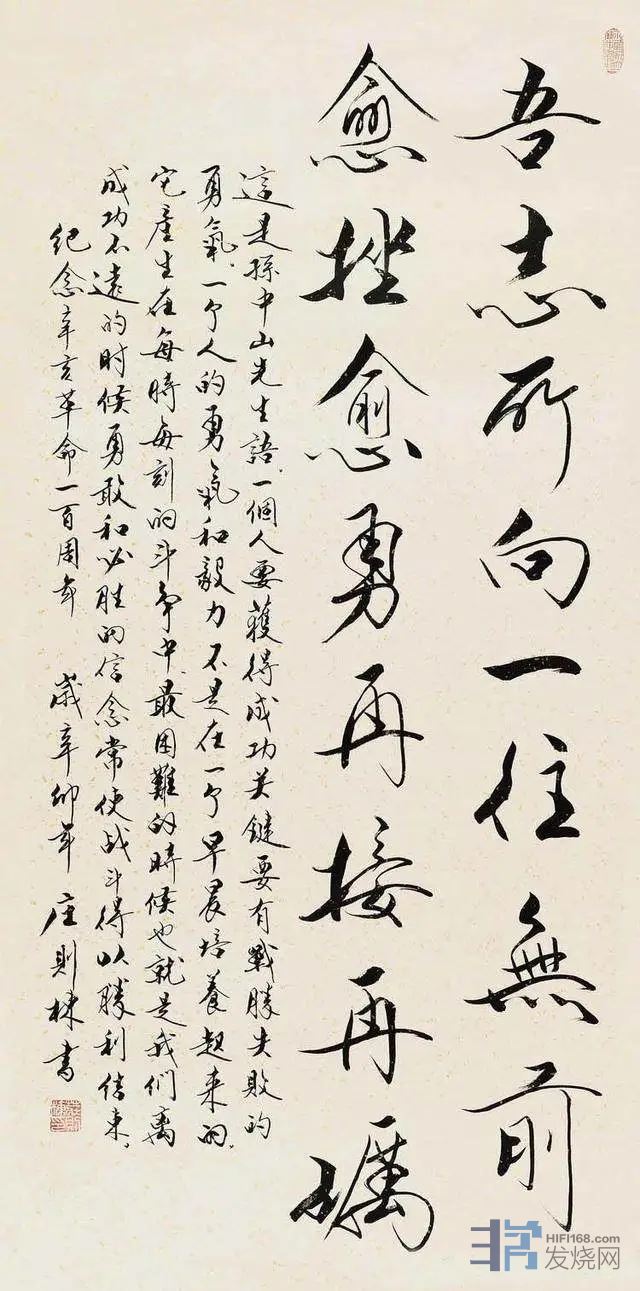 吾志所向一往無前
愈挫愈勇再接再礪
這是孫中山先生語.一個人要獲得成功关鍵要有戰勝失敗的
勇氣.一个人的勇氣和毅力不是在一个早晨培養起来的.
它產生在每時每刻的斗争中.最困難的時候也就是我们离
成功不遠的时候勇敢和必胜的信念常使战斗得以勝利结束.
纪念辛亥革命一百周年 歲辛卯年 庄則棟書
HIFI168.com
发烧网